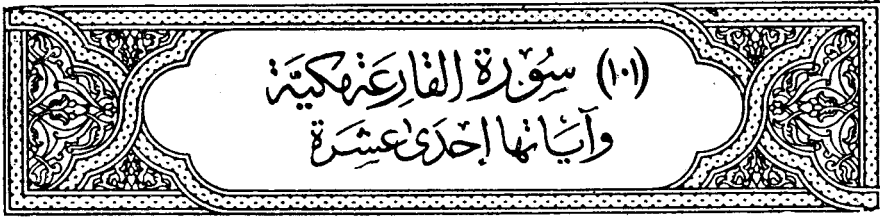 (١٠١) سُوْرَة القارِعَة مكيَّة
وآيَاتها إحْدَى عشِرَة